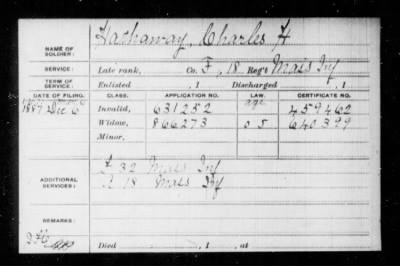 Hathaway, Charles H
NAME OF SOLDIER:
SERVICE: Late rank, Co. F, 18 Reg't Mass Inf
TERM OF SERVICE: Enlisted , 1 Discharged , 1
DATE OF FILING. CLASS. APPLICATION NO. LAW. CERTIFICATE NO.
1887 Dec 6 Invalid, 631252 age 459462
Widow, 866273 0 5 640399
Minor,
ADDITIONAL SERVICES: F 32 Mass Inf
18 Mass Inf
REMARKS:
Died , 1 , at